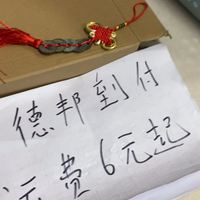 德邦到付
运费6元起